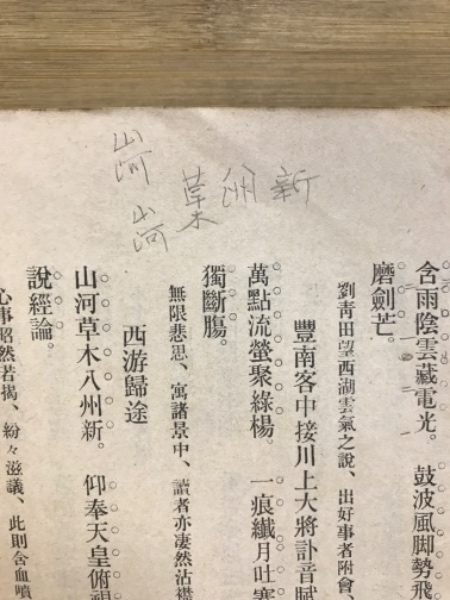 新
草木
山河
山河
含雨陰雲藏電光。鼓波風脚勢飛
磨劍芒。
劉靑田望西湖雲氣之說、出好事者附會、
豐南客中接川上大將訃音賦
萬點流螢聚綠楊。一痕纖月吐寒
獨斷膓。
無限悲思、寓諸景中、讀者亦凄然沾襟
西游歸途
山河草木八州新。仰奉天皇俯視
說經論。
心事昭然若揭、紛々滋議、此則含血噴